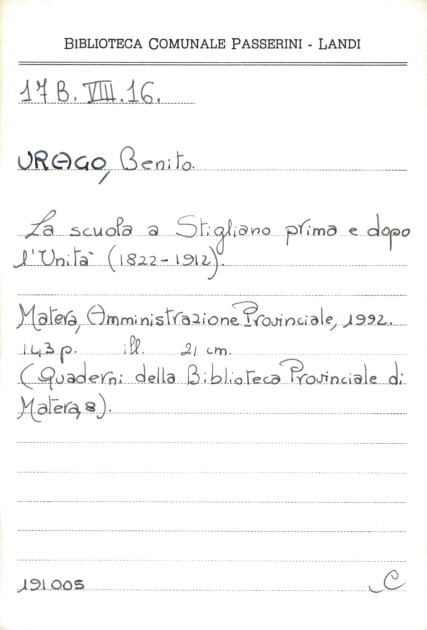 BIBLIOTECA COMUNALE PASSERINI - LANDI
17 B. VIII. 16.
URAGO, Benito.
La scuola a Stigliano prima e dopo
l'Unità (1822-1912).
Matera, Amministrazione Provinciale, 1992.
143 p. ill. 21 cm.
(Quaderni della Biblioteca Provinciale di
Matera, 8).
191.005 C